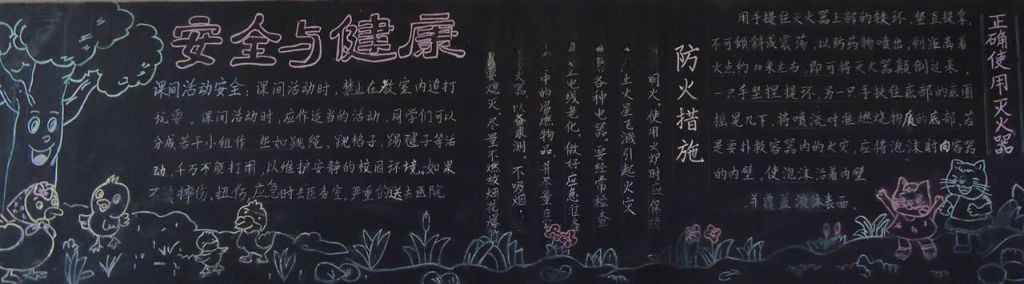 安全与健康
课间活动安全：课间活动时，禁止在教室内追打
玩耍。课间活动时，应作适当的活动，同学们可以
分成若干小组作一些如跳绳、跳格子、踢毽子等活
动，千万不能打闹，以维护安静的校园环境。如果
摔伤，扭伤，应急时去医务室，严重的送去医院
防火措施
明火，使用火炉时应保
止火星飞溅引起火灾
各种电器。要经常检查
电线老化，做好应急准
中的易燃物品
火器，以备来测。不吸烟，
熄灭
正确使用灭火器
用手提住灭火器上部的铁环，竖直提拿，
不可倾斜或震荡，以防药物喷出，到距离着
火点约10米左右，即可将灭火器颠倒过来，
一只手坚捏提环，另一只手扶住底部的底圈
摇晃几下，将喷流对准燃烧物质的底部，若
是要扑救容器内的火灾，应将泡沫射向容器
的内壁，使泡沫沿着内壁
并覆盖液体表面。